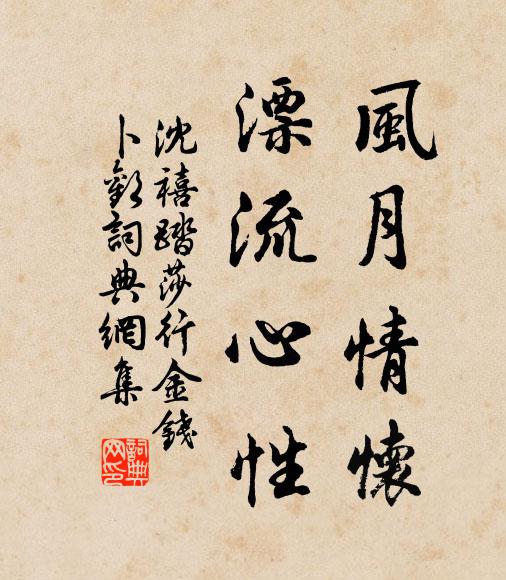 風月情懷
漂流心性
沈禧踏莎行金錢
卜歡詞典網集
詞典网印